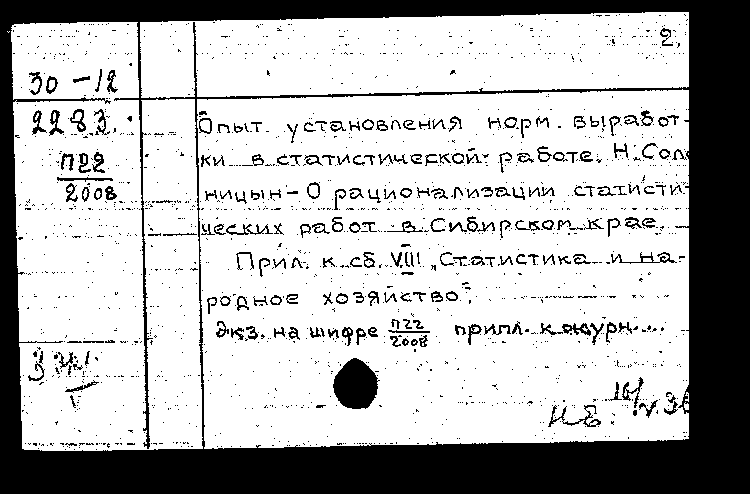 2.
30-12
2283.
П22
2008
Опыт установления норм выработ-
ки в статистической работе. Н. Соло
ницын - О рационализации статисти-
ческих работ в Сибирском крае.
Прил. к сб. VIII „Статистика и на-
родное хозяйство",
Экз. на шифре П22/2008 припл. к журн....
3 экз.
V
Н.Е. 16/V.36